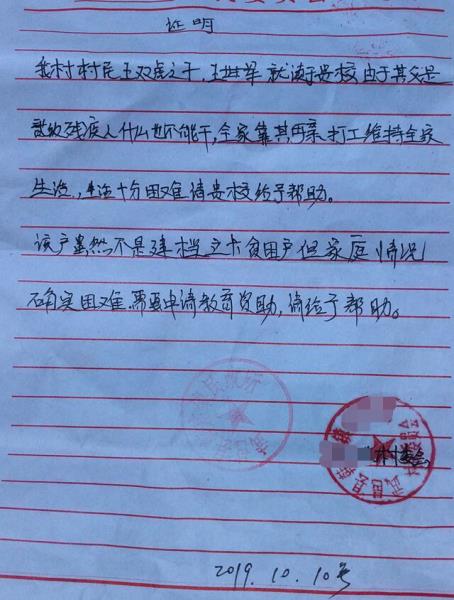 证明
我村村民王双虎之子,王世军就读于贵校由于其父是
残疾人什么也不能干,全家靠其母亲打工维持全家
生活,生活十分困难请贵校给予帮助。
该户虽然不是建档立卡贫困户但家庭情况
确实困难,需要申请教育资助,请给予帮助。
村委会
2019.10.10号